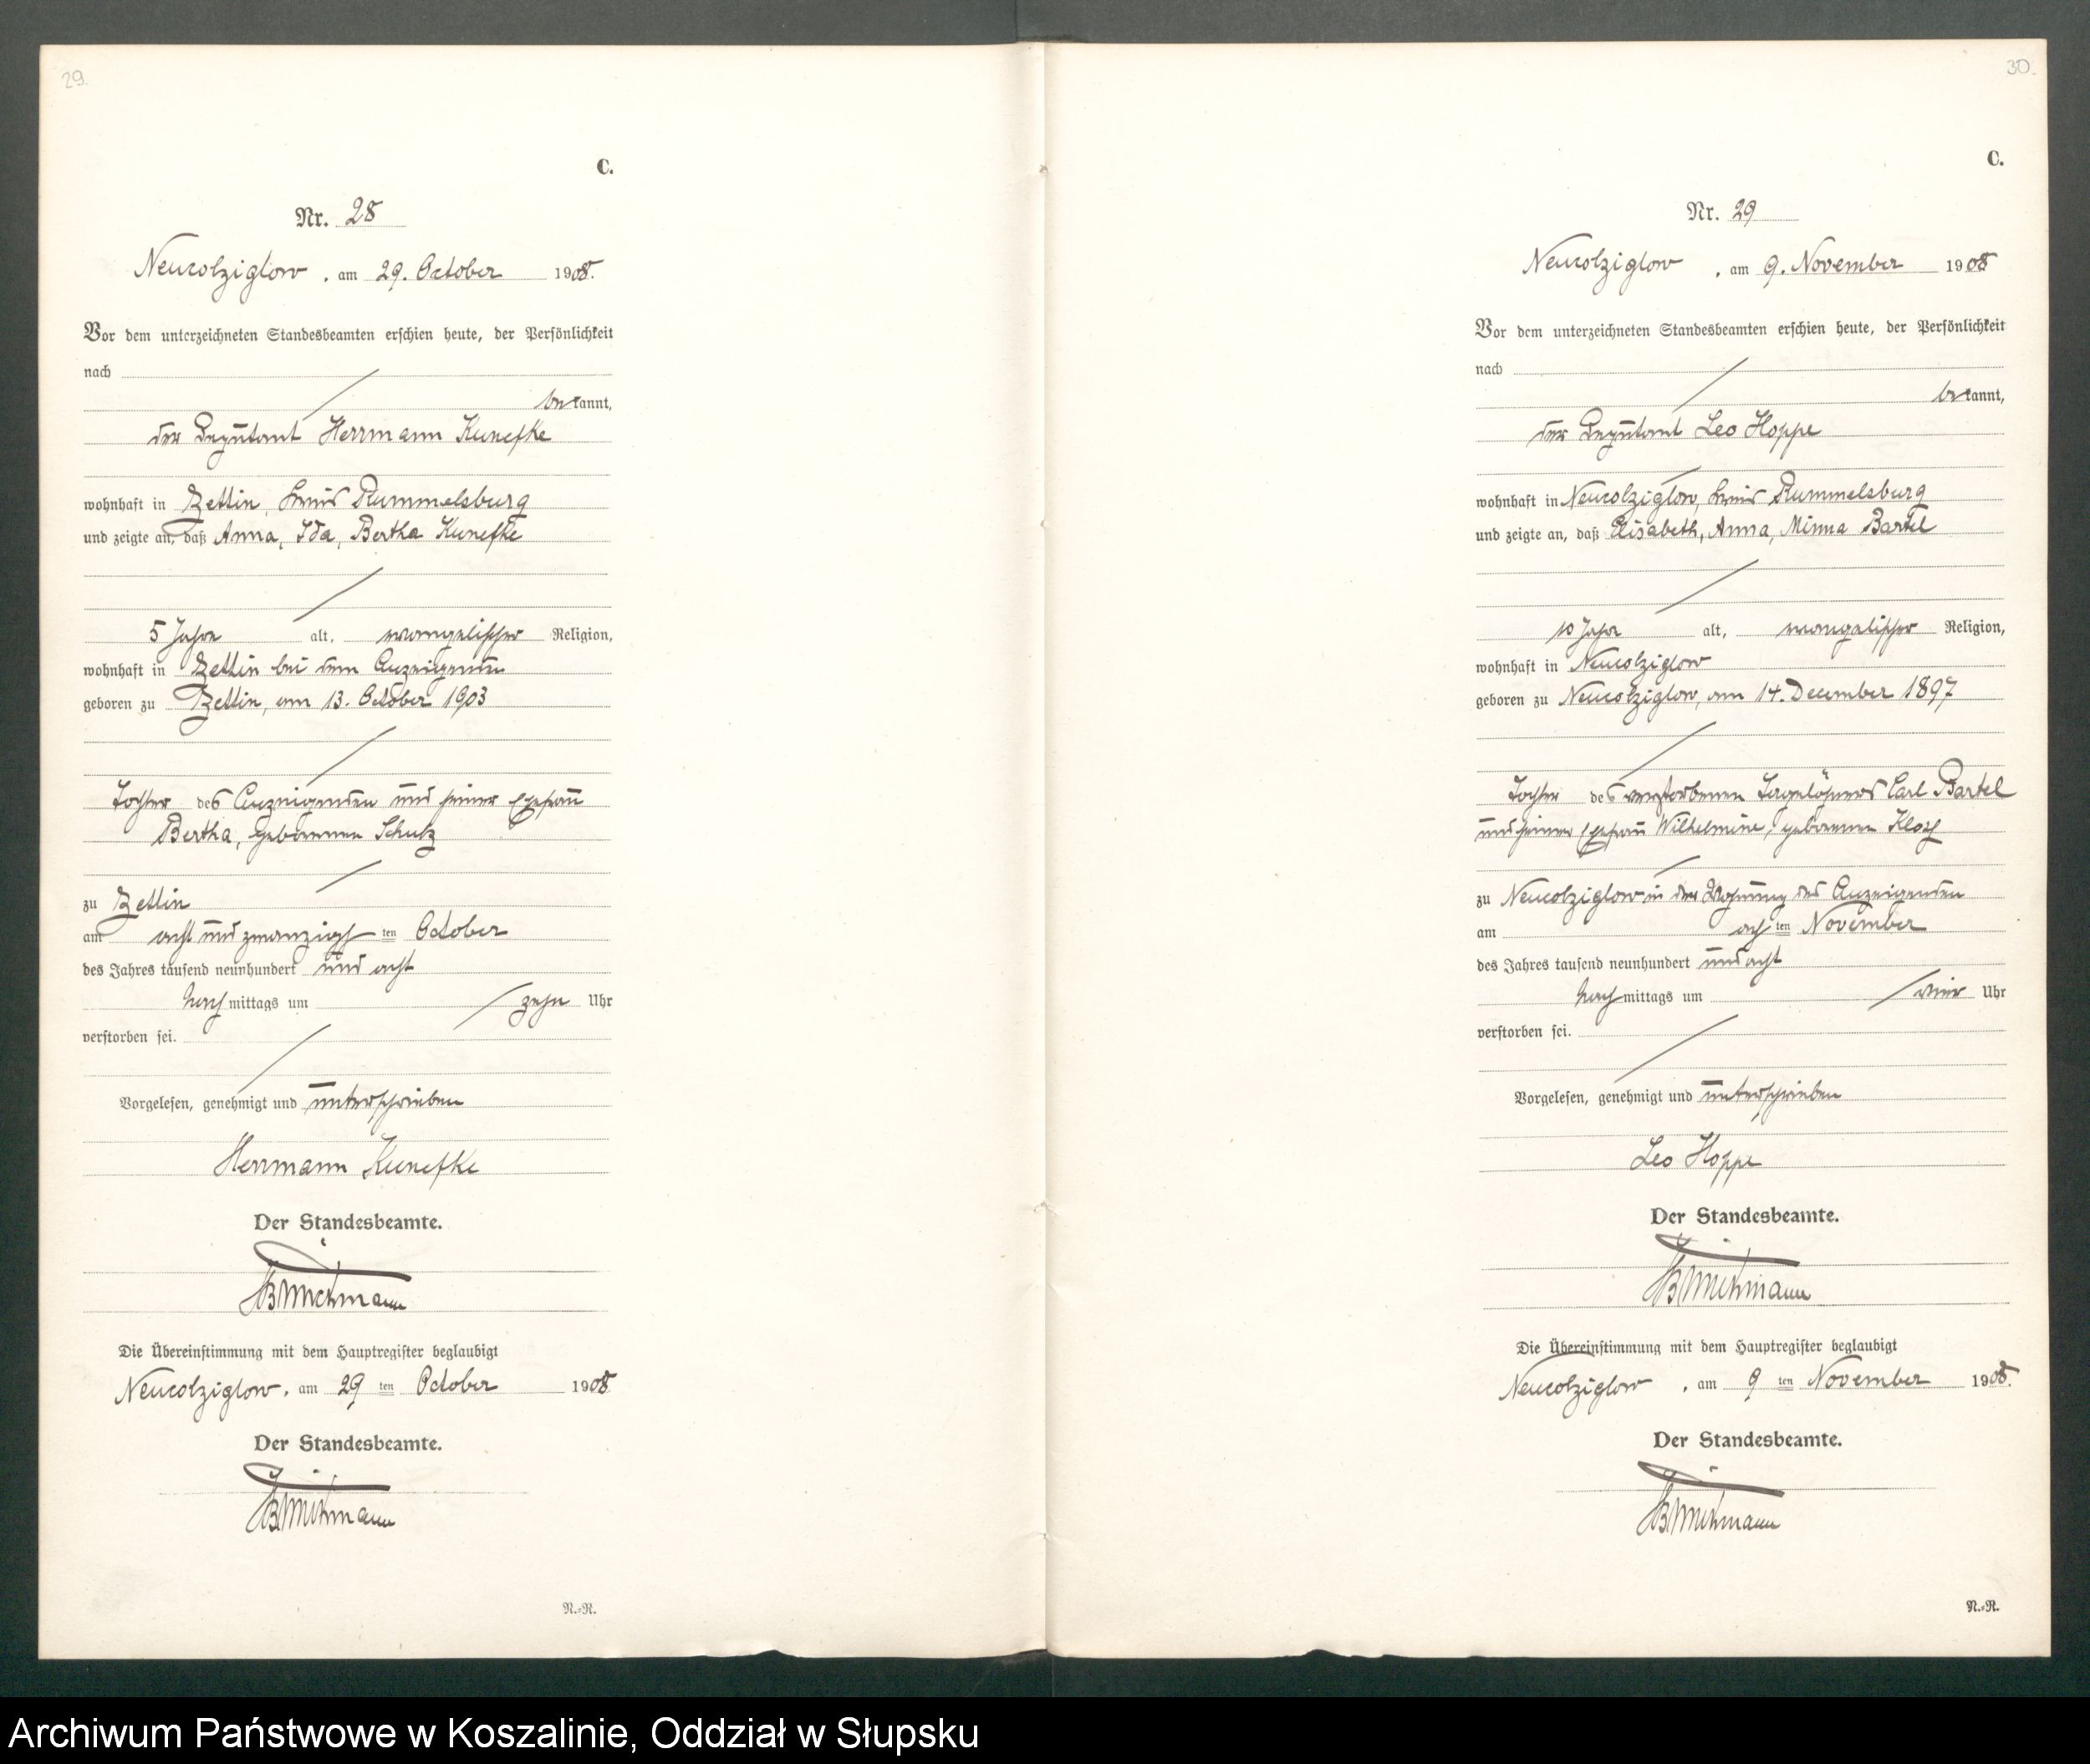 29.
C.
Nr. 28
Neukolziglow, am 29. October 1908.
Vor dem unterzeichneten Standesbeamten erschien heute, der Persönlichkeit
nach
bekannt,
der Deputant Herrmann Kunefke
wohnhaft in Zettin, Kreis Rummelsburg
und zeigte an, daß Anna, Ida, Bertha Kunefke
5 Jahre alt, evangelischer Religion,
wohnhaft in Zettin bei dem Anzeigenden
geboren zu Zettin, am 13. October 1903
Tochter des Anzeigenden und seiner Ehefrau
Bertha, geborenen Schulz
zu Zettin
am acht und zwanzigsten October
des Jahres tausend neunhundert und acht
Nachmittags um zehn Uhr
verstorben sei.
Vorgelesen, genehmigt und unterschrieben
Herrmann Kunefke
Der Standesbeamte.
Die Übereinstimmung mit dem Hauptregister beglaubigt
Neukolziglow, am 29 ten October 1908
Der Standesbeamte.
N.-R.
30.
C.
Nr. 29
Neukolziglow, am 9. November 1908
Vor dem unterzeichneten Standesbeamten erschien heute, der Persönlichkeit
nach
bekannt,
der Deputant Leo Hoppe
wohnhaft in Neukolziglow, Kreis Rummelsburg
und zeigte an, daß Elisabeth, Anna, Minna Bartel
10 Jahre alt, evangelischer Religion,
wohnhaft in Neukolziglow
geboren zu Neukolziglow, am 14. December 1897
Tochter des verstorbenen Tagelöhners Carl Bartel
und seiner Ehefrau Wilhelmine, geborenen
zu Neukolziglow in der Wohnung des Anzeigenden
am achten November
des Jahres tausend neunhundert und acht
Nachmittags um vier Uhr
verstorben sei.
Vorgelesen, genehmigt und unterschrieben
Leo Hoppe
Der Standesbeamte.
Die Übereinstimmung mit dem Hauptregister beglaubigt
Neukolziglow, am 9 ten November 1908.
Der Standesbeamte.
N.-R.
Archiwum Państwowe w Koszalinie, Oddział w Słupsku